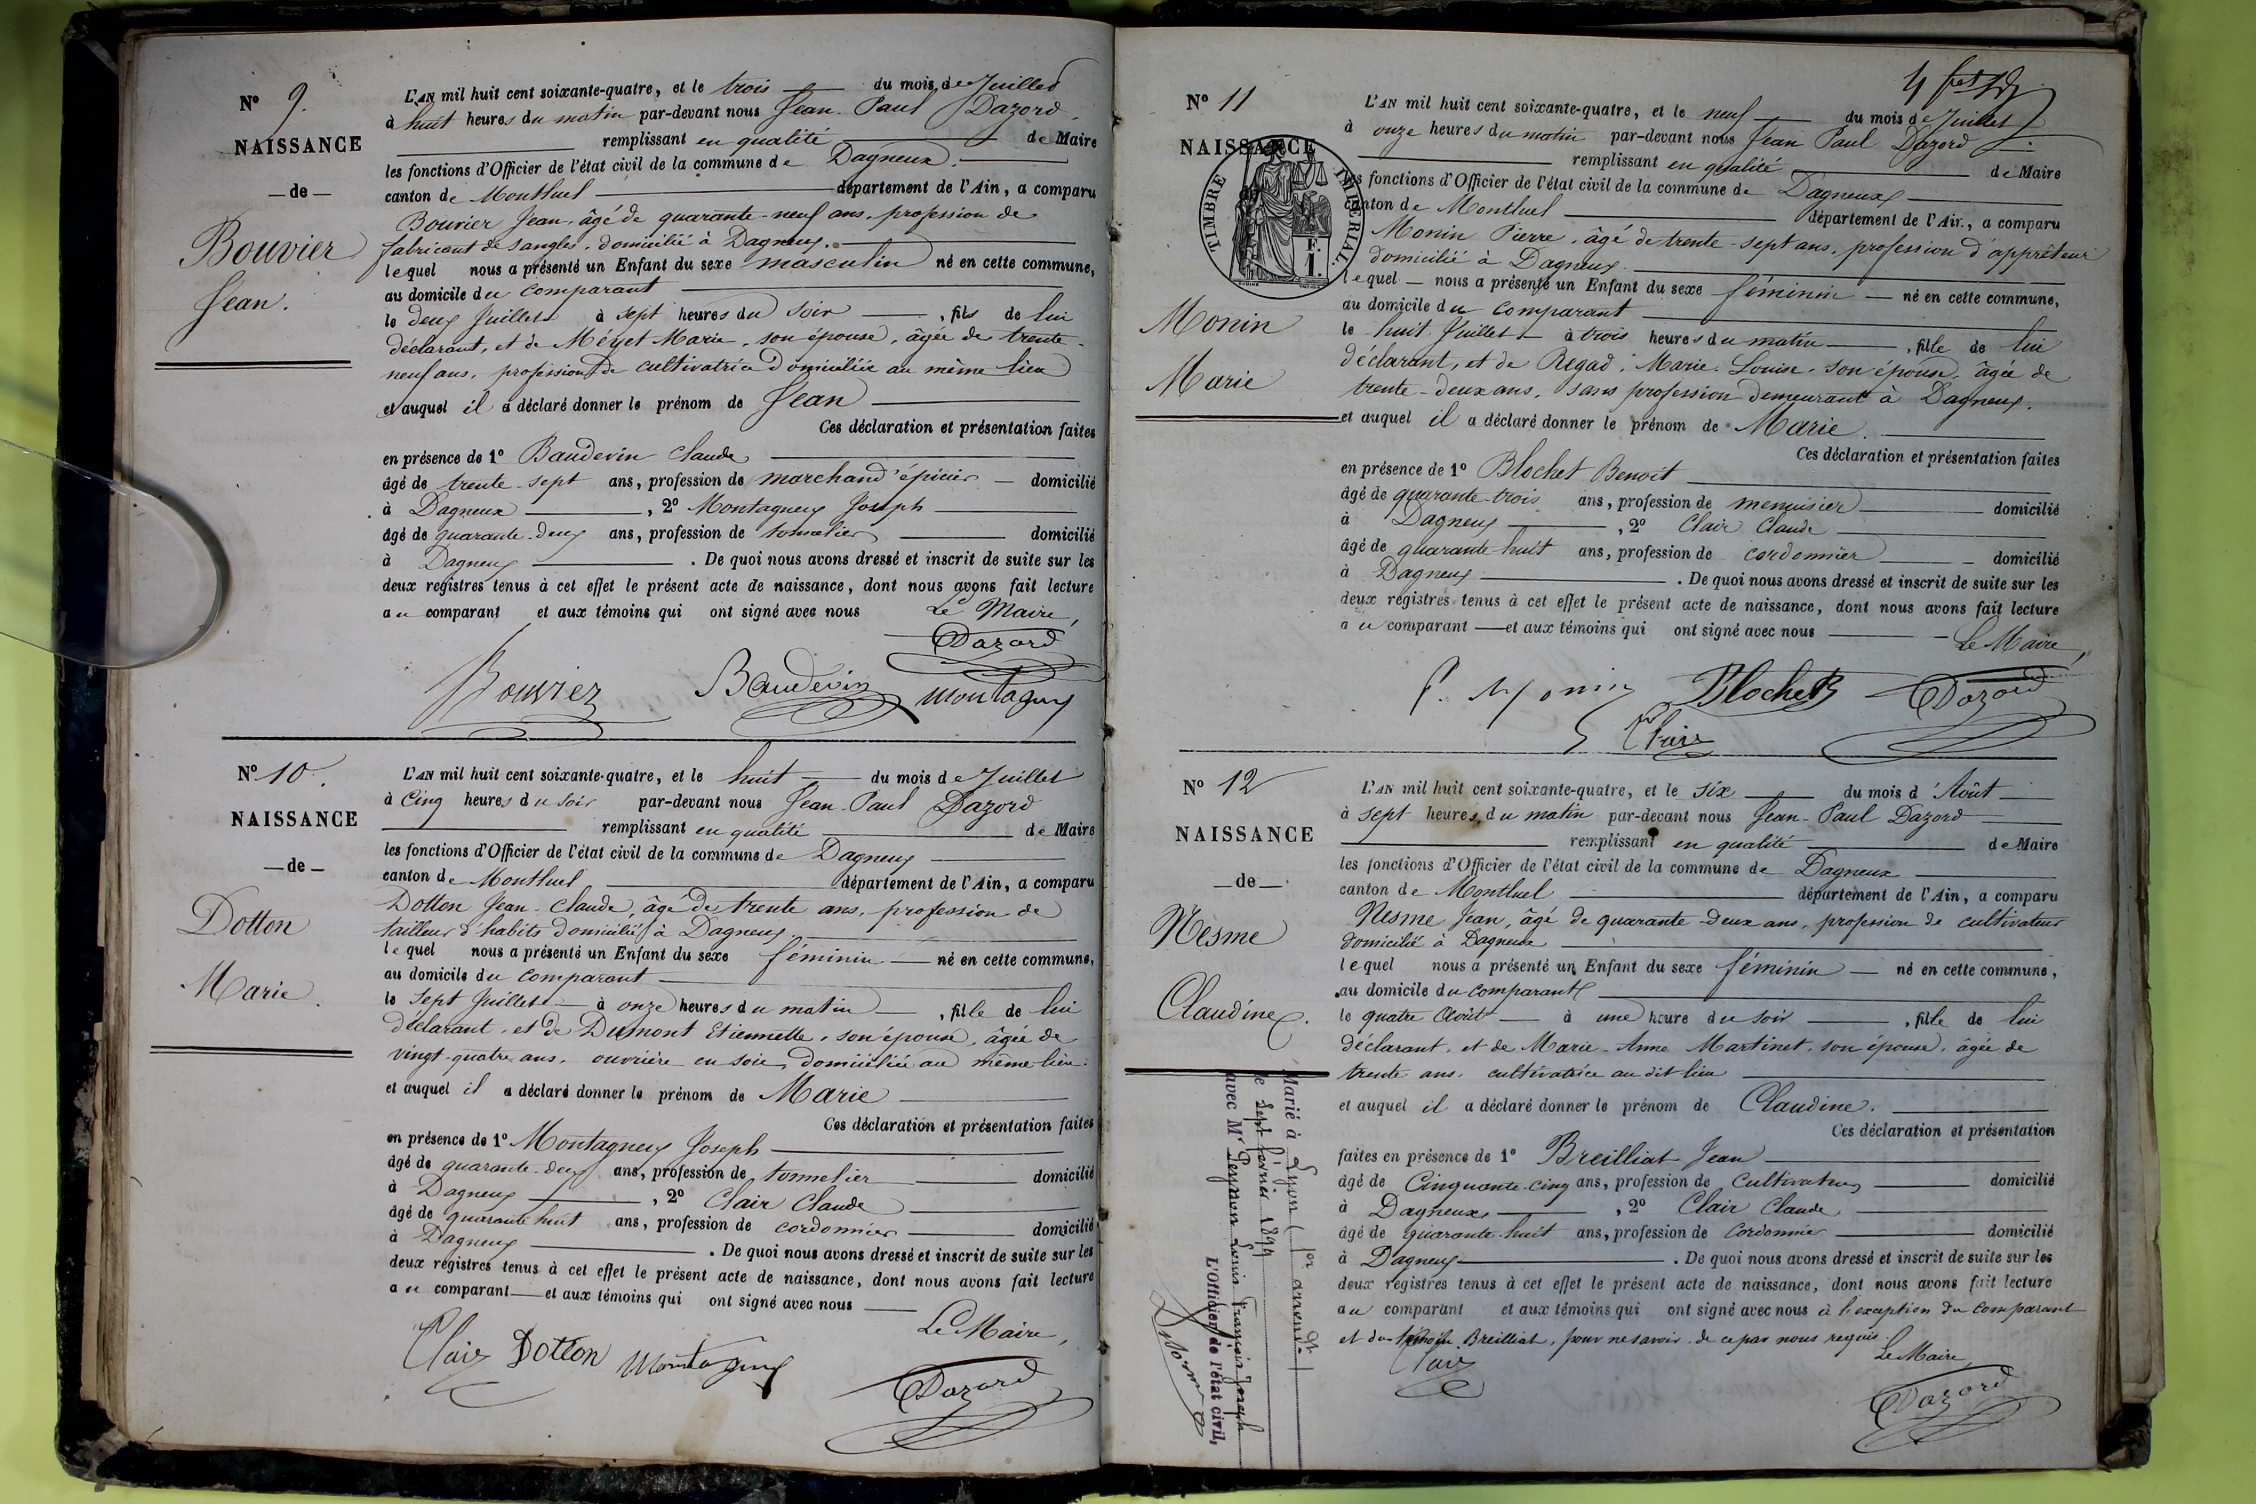 N° 9.
NAISSANCE
— de —
Bouvier
Jean.
L'AN mil huit cent soixante-quatre, et le trois du mois de Juillet
à huit heures du matin par-devant nous Jean-Paul Dazord
remplissant en qualité de Maire
les fonctions d'Officier de l'état civil de la commune de Dagneux.
canton de Montluel département de l'Ain, a comparu
Bouvier Jean, âgé de quarante-neuf ans, profession de
fabricant de sangles, domicilié à Dagneux.
lequel nous a présenté un Enfant du sexe masculin né en cette commune,
au domicile du comparant
le deux Juillet à sept heures du soir, fils de lui
déclarant, et de Méyet Marie, son épouse, âgée de trente-
neuf ans, profession de cultivatrice domiciliée au même lieu
et auquel il a déclaré donner le prénom de Jean
Ces déclaration et présentation faites
en présence de 1° Baudevin Claude
âgé de trente-sept ans, profession de marchand épicier — domicilié
à Dagneux, 2° Montagneux Joseph
âgé de quarante-deux ans, profession de tonnelier domicilié
à Dagneux. De quoi nous avons dressé et inscrit de suite sur les
deux registres tenus à cet effet le présent acte de naissance, dont nous avons fait lecture
au comparant et aux témoins qui ont signé avec nous Le Maire,
Dazord
Bouvier Baudevin Montagny
N° 10.
NAISSANCE
— de —
Dotton
Marie.
L'AN mil huit cent soixante-quatre, et le huit du mois de Juillet
à cinq heures du soir par-devant nous Jean-Paul Dazord
remplissant en qualité de Maire
les fonctions d'Officier de l'état civil de la commune de Dagneux
canton de Montluel département de l'Ain, a comparu
Dotton Jean-Claude, âgé de trente ans, profession de
tailleur d'habits domicilié à Dagneux.
lequel nous a présenté un Enfant du sexe féminin — né en cette commune,
au domicile du comparant
le sept Juillet à onze heures du matin, fille de lui
déclarant, et de Dumont Etiennette, son épouse, âgée de
vingt-quatre ans, ouvrière en soie, domiciliée au même lieu.
et auquel il a déclaré donner le prénom de Marie
Ces déclaration et présentation faites
en présence de 1° Montagneux Joseph
âgé de quarante-deux ans, profession de tonnelier domicilié
à Dagneux, 2° Clair Claude
âgé de quarante huit ans, profession de cordonnier domicilié
à Dagneux. De quoi nous avons dressé et inscrit de suite sur les
deux registres tenus à cet effet le présent acte de naissance, dont nous avons fait lecture
au comparant — et aux témoins qui ont signé avec nous
Le Maire,
Clair Dotton Montagny
Dazord
N° 11
NAISSANCE
TIMBRE IMPERIAL.
Monin
Marie
L'AN mil huit cent soixante-quatre, et le neuf du mois de Juillet
à onze heures du matin par-devant nous Jean Paul Dazord
remplissant en qualité de Maire
les fonctions d'Officier de l'état civil de la commune de Dagneux
canton de Montluel département de l'Ain, a comparu
Monin Pierre, âgé de trente-sept ans, profession d'apprêteur
domicilié à Dagneux.
lequel — nous a présenté un Enfant du sexe féminin — né en cette commune,
au domicile du comparant
le huit Juillet à trois heures du matin, fille de lui
déclarant, et de Regad, Marie Louise, son épouse, âgée de
trente-deux ans, sans profession demeurant à Dagneux.
et auquel il a déclaré donner le prénom de Marie.
Ces déclaration et présentation faites
en présence de 1° Blochet Benoit
âgé de quarante-trois ans, profession de menuisier domicilié
à Dagneux, 2° Clair Claude
âgé de quarante-huit ans, profession de cordonnier domicilié
à Dagneux. De quoi nous avons dressé et inscrit de suite sur les
deux registres tenus à cet effet le présent acte de naissance, dont nous avons fait lecture
au comparant — et aux témoins qui ont signé avec nous
Le Maire,
P. Monin Blochet Dazord
Clair
N° 12
NAISSANCE
— de —
Nesme
Claudine.
L'AN mil huit cent soixante-quatre, et le six du mois d'Août
à sept heures du matin par-devant nous Jean-Paul Dazord
remplissant en qualité de Maire
les fonctions d'Officier de l'état civil de la commune de Dagneux
canton de Montluel département de l'Ain, a comparu
Nesme Jean, âgé de quarante-deux ans, profession de cultivateur
domicilié à Dagneux
lequel nous a présenté un Enfant du sexe féminin — né en cette commune,
au domicile du comparant
le quatre Août à une heure du soir, fille de lui
déclarant, et de Marie-Anne Martinet, son épouse, âgée de
trente ans, cultivatrice au dit lieu
et auquel il a déclaré donner le prénom de Claudine.
Ces déclaration et présentation
faites en présence de 1° Breilliat Jean
âgé de Cinquante-cinq ans, profession de cultivateur domicilié
à Dagneux, 2° Clair Claude
âgé de quarante-huit ans, profession de Cordonnier domicilié
à Dagneux. De quoi nous avons dressé et inscrit de suite sur les
deux registres tenus à cet effet le présent acte de naissance, dont nous avons fait lecture
au comparant et aux témoins qui ont signé avec nous à l'exception du comparant
et du témoin Breilliat, pour ne savoir de ce par nous requis.
Le Maire
Clair
Dazord
Marié à Lyon (1er arrendt)
le sept février 1899
avec Mr Pengeon Louis François Joseph
L'Officier de l'état civil,